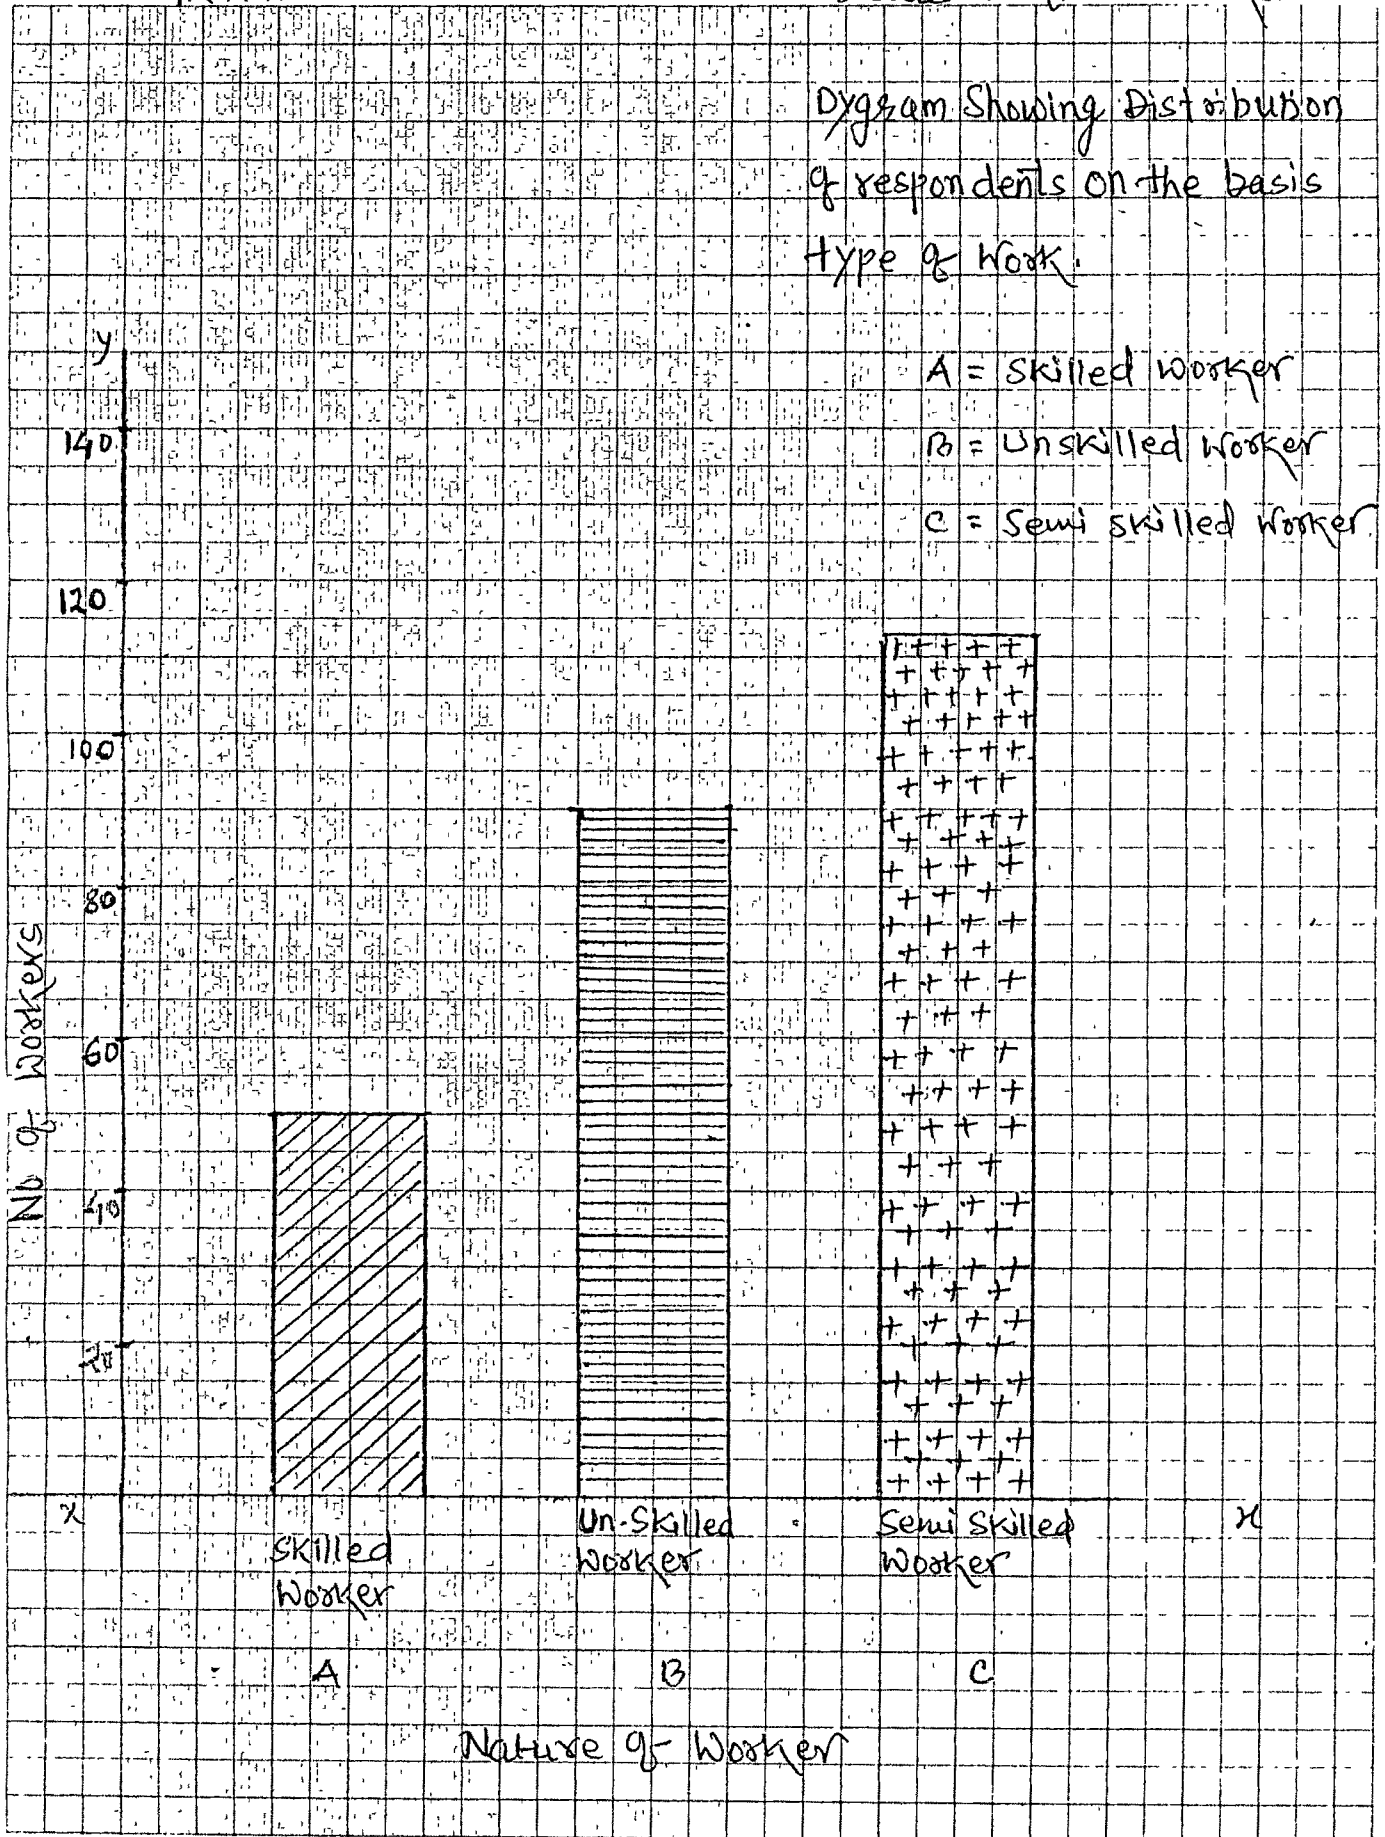 Dygram Showing Distribution
of respondents on the basis
type of Work.
y
A = Skilled Worker
140
B = Unskilled Worker
C = Semi skilled Worker
120
100
80
60
40
20
No of Workers
x
x
Skilled
Worker
Un-Skilled
Worker
Semi Skilled
Worker
A
B
C
Nature of Worker